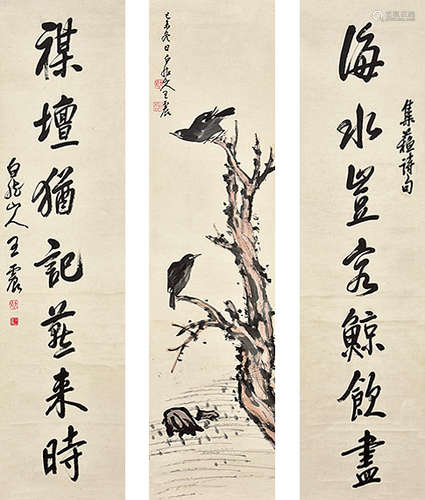 海水豈容鯨飲盡
集蘇詩句
己亥冬日白龍山人王震
禖壇猶記燕来時
白龍山人王震